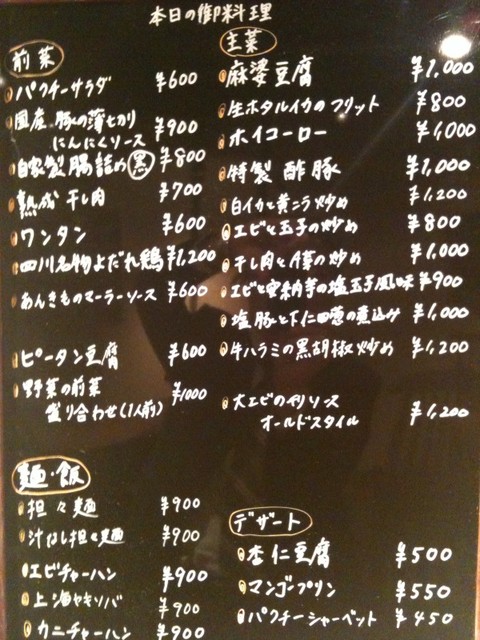 本日の御料理
前菜
パクチーサラダ ¥600
国産豚の薄切り
にんにくソース ¥900
自家製腸詰め(黒) ¥800
熟成干し肉 ¥700
ワンタン ¥600
四川名物よだれ鶏 ¥1,200
あんきものマーラーソース ¥600
ピータン豆腐 ¥600
野菜の前菜
盛り合わせ(1人前) ¥1000
麺・飯
担々麺 ¥900
汁なし担々麺 ¥900
エビチャーハン ¥900
上海ヤキソバ ¥900
カニチャーハン ¥900
主菜
麻婆豆腐 ¥1,000
生ホタルイカのフリット ¥800
ホイコーロー ¥1,000
特製酢豚 ¥1,000
白イカと黄ニラ炒め ¥1,200
エビと玉子の炒め ¥800
干し肉と台菜の炒め ¥1,000
エビと安納芋の塩玉子風味 ¥900
塩豚と下仁田葱の煮込み ¥1,000
牛ハラミの黒胡椒炒め ¥1,200
大エビのチリソース
オールドスタイル ¥1,200
デザート
杏仁豆腐 ¥500
マンゴープリン ¥550
パクチーシャーベット ¥450